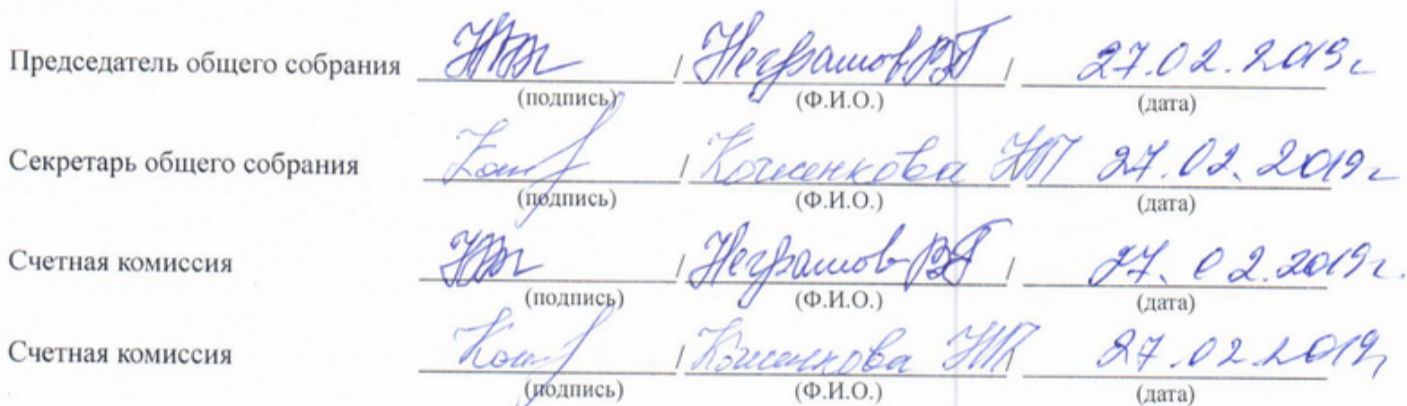 Председатель общего собрания / Неграшов В П / 27.02.2019г
(подпись) (Ф.И.О.) (дата)
Секретарь общего собрания / НП 27.02.2019г
(подпись) (Ф.И.О.) (дата)
Счетная комиссия / Неграшов В П / 27.02.2019г.
(подпись) (Ф.И.О.) (дата)
Счетная комиссия / НП 27.02.2019г
(подпись) (Ф.И.О.) (дата)